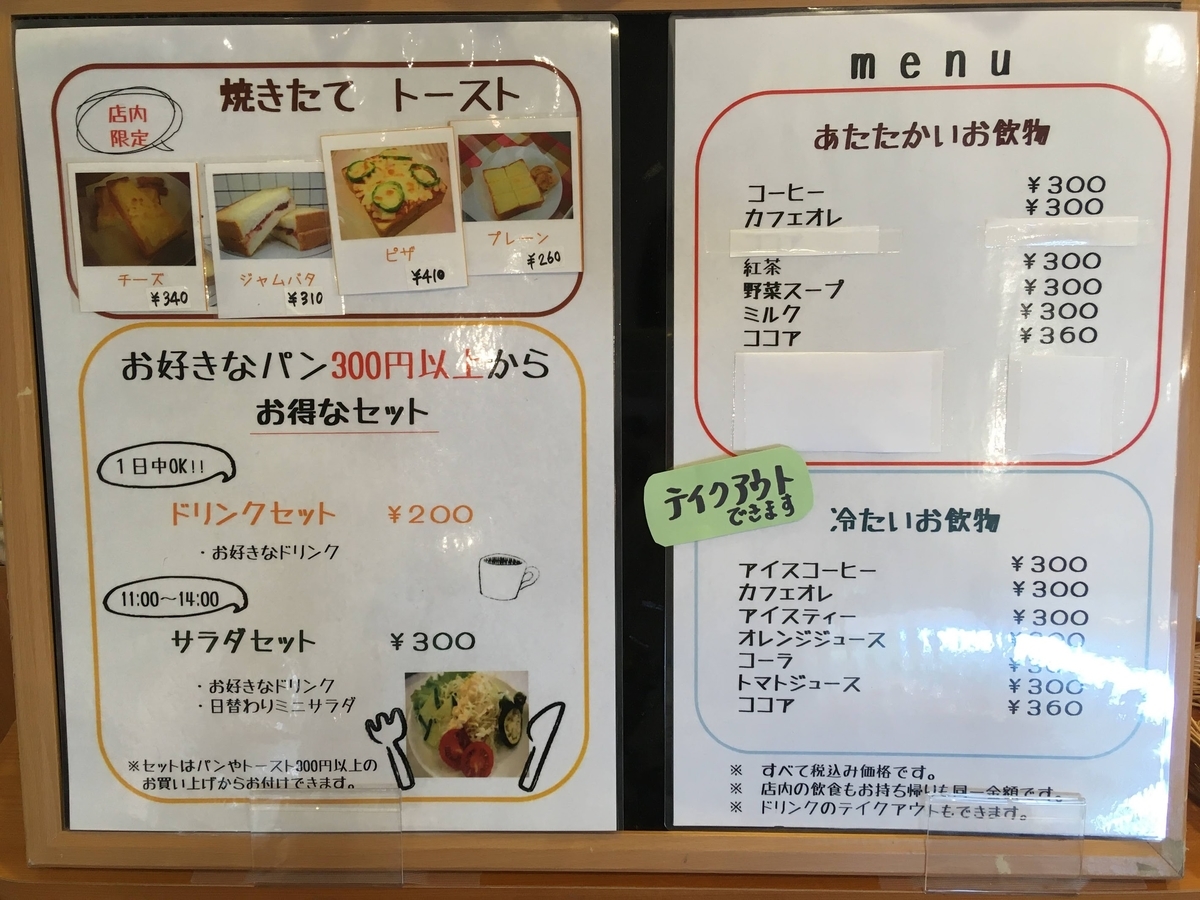 焼きたて トースト
店内
限定
チーズ
¥340
ジャムバタ
¥310
ピザ
¥410
プレーン
¥260
お好きなパン300円以上から
お得なセット
1日中OK!!
ドリンクセット ¥200
・お好きなドリンク
11:00~14:00
サラダセット ¥300
・お好きなドリンク
・日替わりミニサラダ
※セットはパンやトースト300円以上の
お買い上げからお付けできます。
menu
あたたかいお飲物
コーヒー ¥300
カフェオレ ¥300
紅茶 ¥300
野菜スープ ¥300
ミルク ¥300
ココア ¥360
テイクアウト
できます
冷たいお飲物
アイスコーヒー ¥300
カフェオレ ¥300
アイスティー ¥300
オレンジジュース
コーラ
トマトジュース ¥300
ココア ¥360
※ すべて税込み価格です。
※ 店内の飲食もお持ち帰りも同一金額です。
※ ドリンクのテイクアウトもできます。